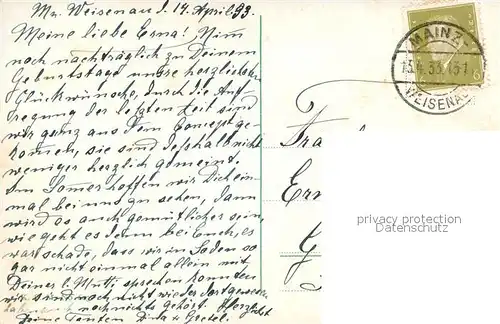 Mz. Weisenau d. 14. April. 33.
Meine liebe Erna! Nim
noch nachträglich zu Deinem
Geburtstage unsre herzlichsten
Glückwünsche, durch die Auf-
regung der letzten Zeit sind
wir ganz aus dem Conzept ge-
kommen, sie sind deshalb nicht
weniger herzlich gemeint.
Im Somer hoffen wir Dich ein-
mal bei uns zu sehen, dann
wird es auch gemütlicher sein,
wie geht es denn bei Euch, es
war schade, dass wir in Soden so
gar nicht einmal allein mit
Deiner l. Mutti sprechen konnten
wir sind noch nicht wieder dort gewesen
noch nichts gehört. Herzlichst
Deine Tanten & Gretel.
MAINZ-
13.4.33.15-1
WEISENAU
6
Fra
Ern
G
privacy protection
Datenschutz